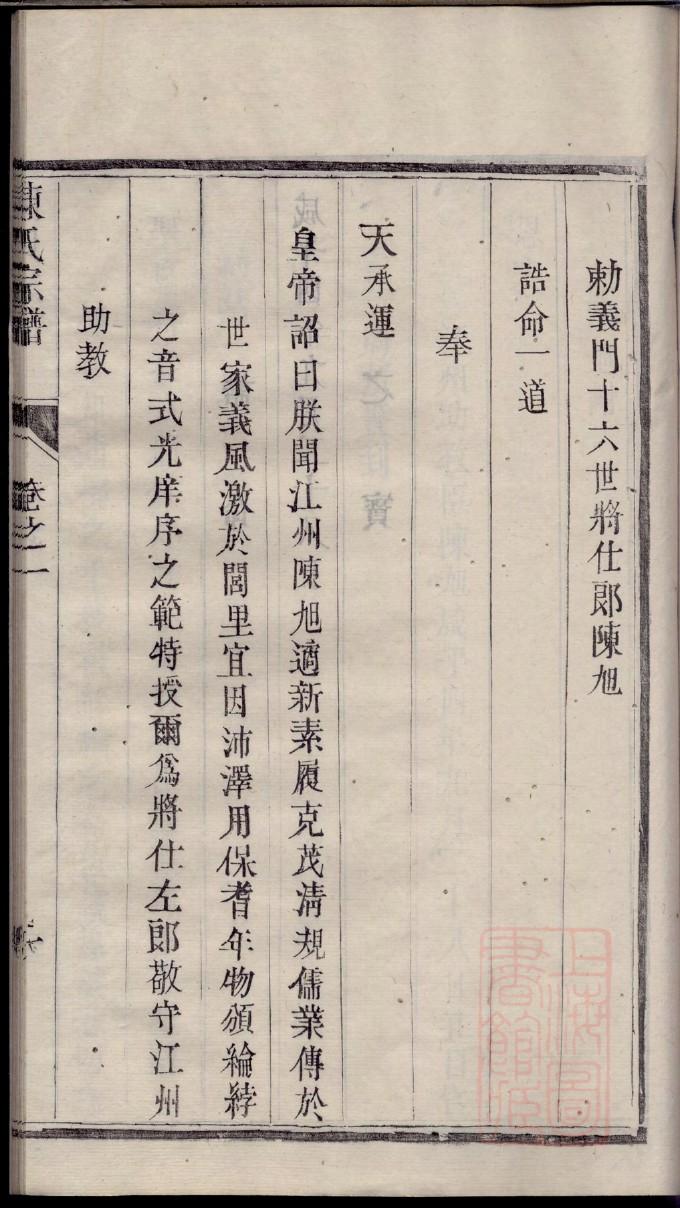 勅義門十六世將仕郎陳旭
誥命一道
奉
天承運
皇帝詔曰朕聞江州陳旭適新素履克茂清規儒業傳於
世家義風激於閭里宜因沛澤用保耆年物頒綸綍
之音式光庠序之範特授爾爲將仕左郎敬守江州
助教
陳氏宗譜
卷之一
上海圖書館藏